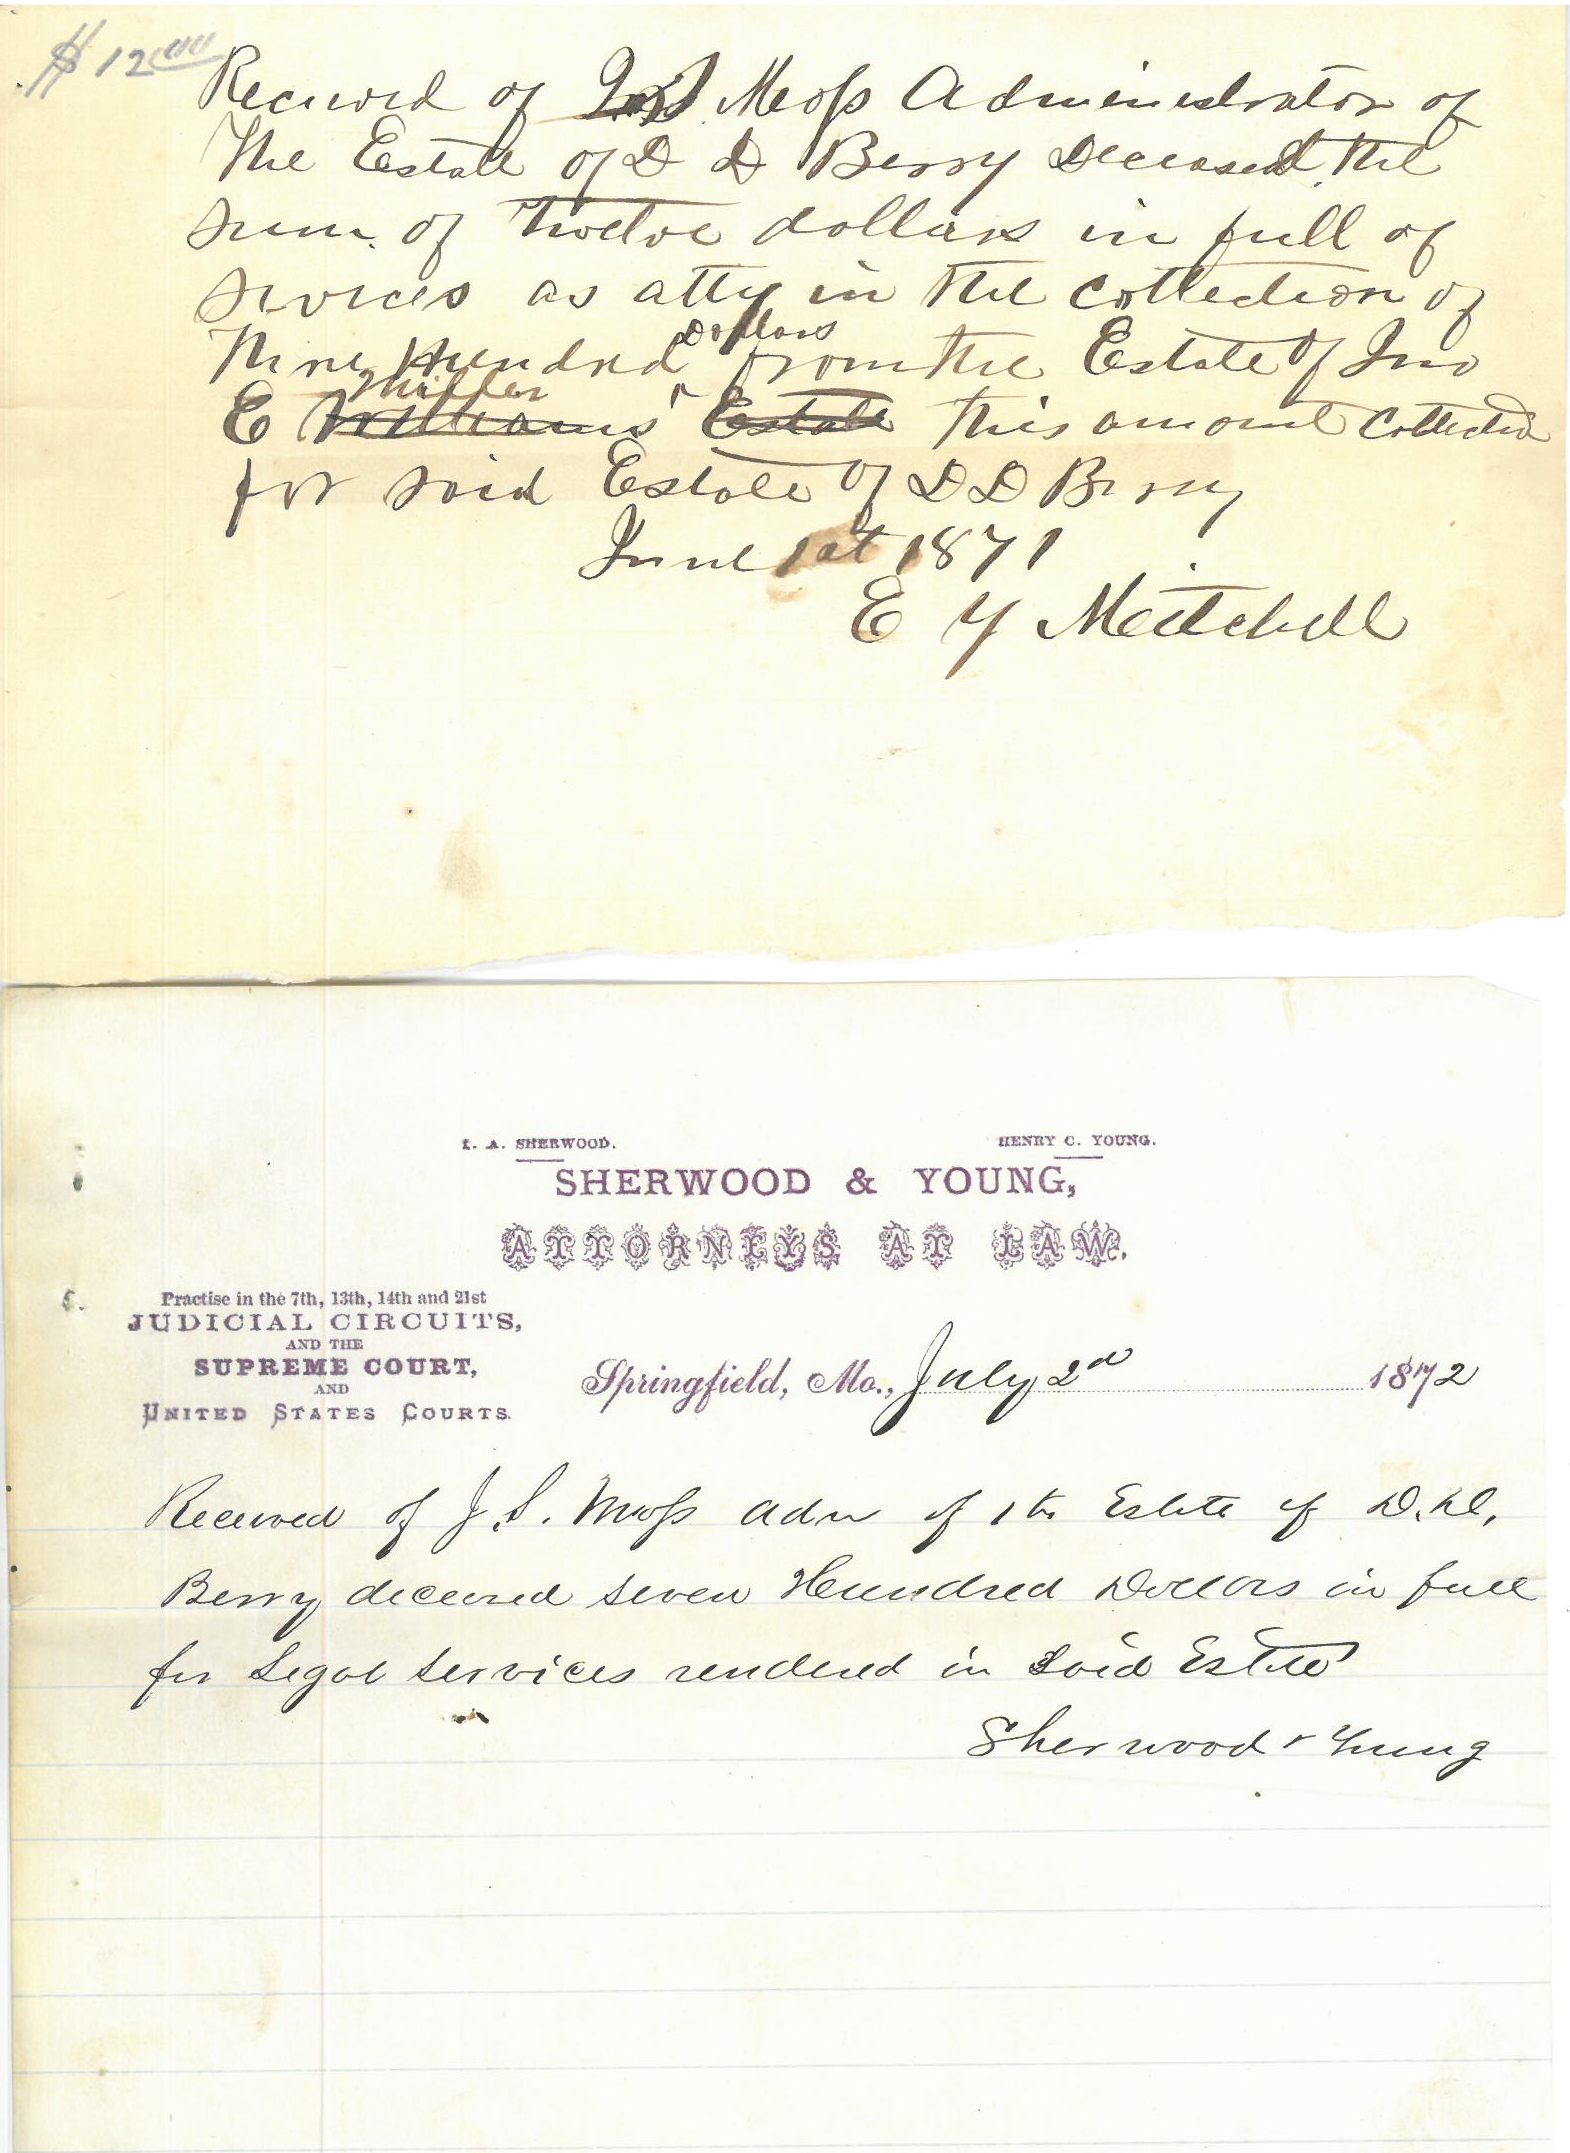 $12.00
Received of J S Moss Administrator of
The Estate of D D Berry Deceased, the
sum of Twelve dollars in full of
services as atty in the collection of
Nine Hundred Dollars from the Estate of Jno
E Miller Williams' Estate this amount collected
for said Estate of D D Berry
June 1st 1871
E Y Mitchell
T. A. SHERWOOD. HENRY C. YOUNG.
SHERWOOD & YOUNG,
ATTORNEYS AT LAW.
Practise in the 7th, 13th, 14th and 21st
JUDICIAL CIRCUITS,
AND THE
SUPREME COURT,
AND
UNITED STATES COURTS.
Springfield, Mo., July 2d 1872
Received of J. S. Moss adm of the Estate of D. D.
Berry deceased seven Hundred Dollars in full
for Legal services rendered in said Estate
Sherwood & Young